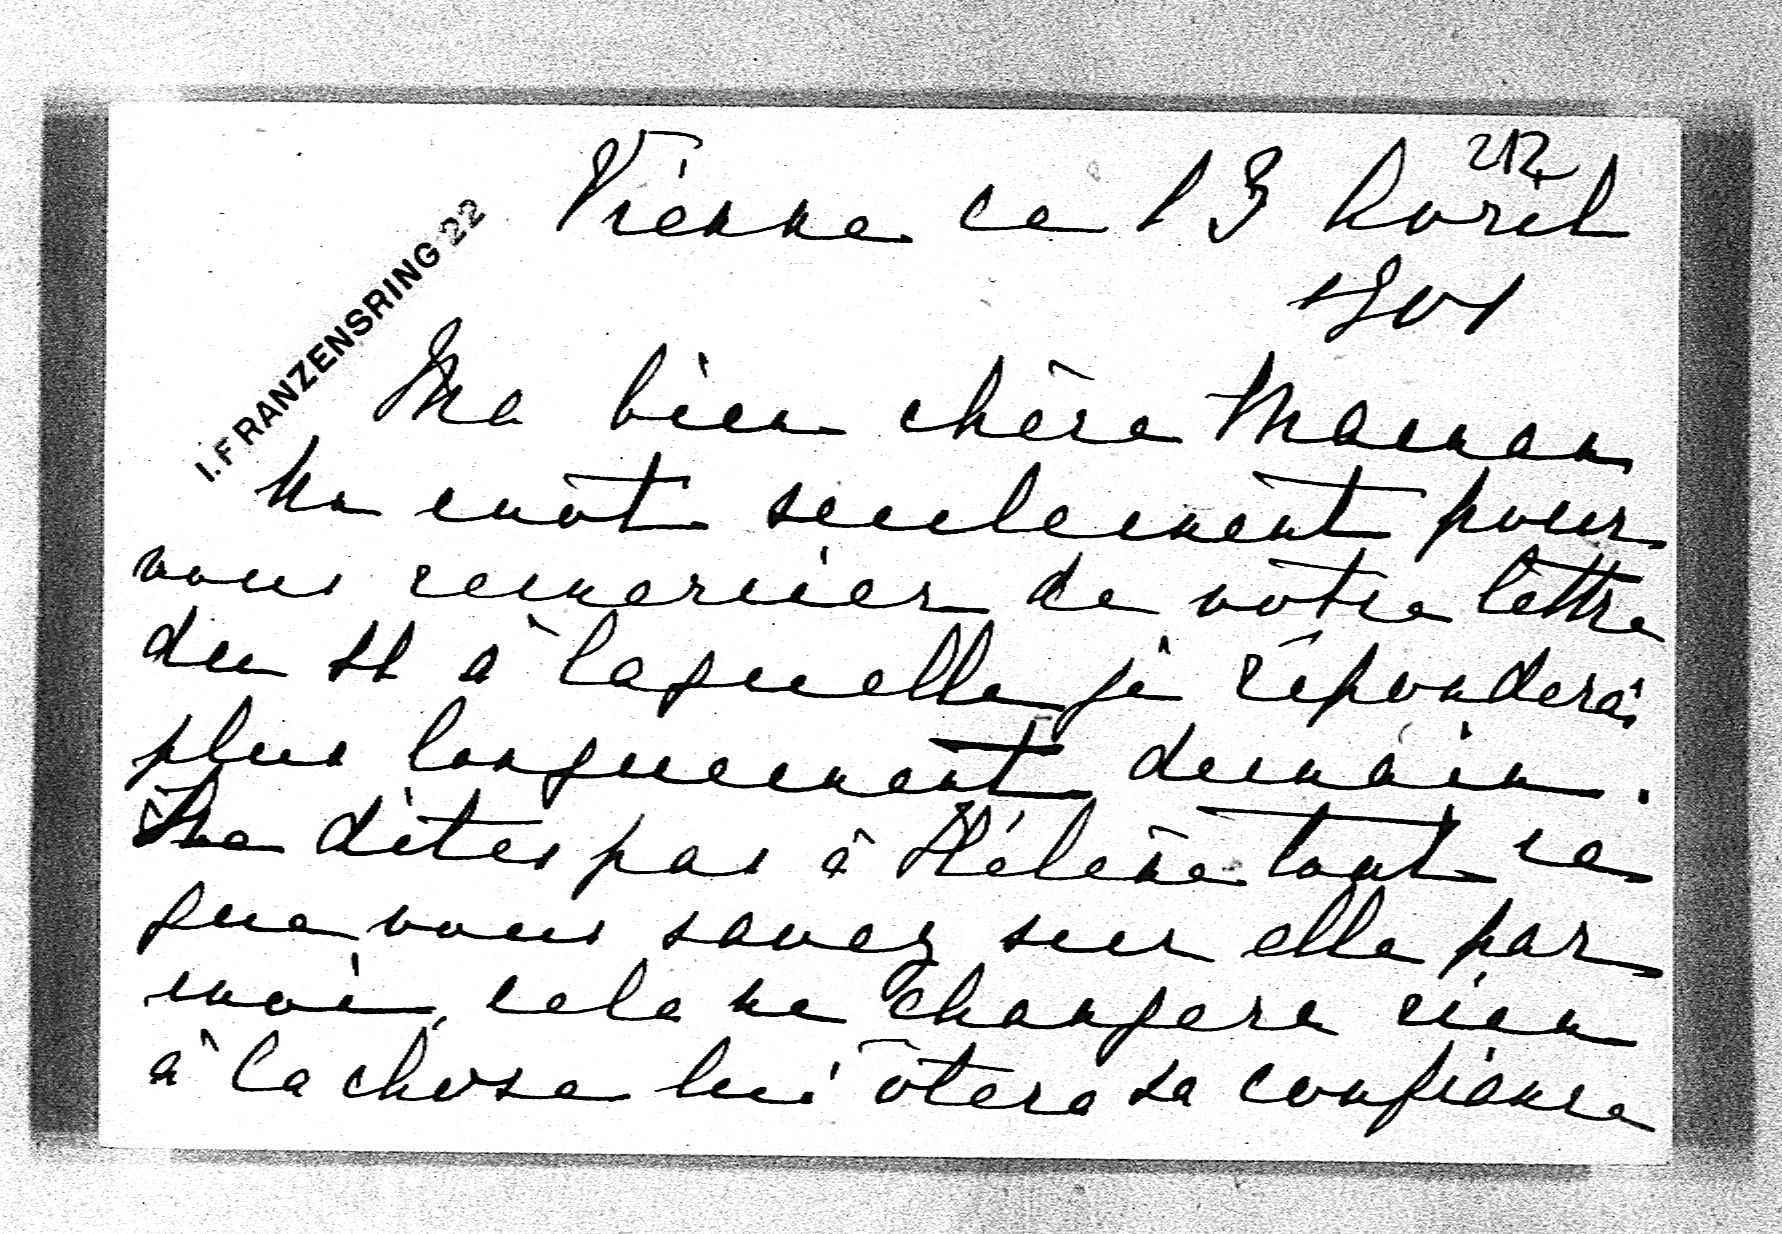 212
Vienne ce 13 Avril
1901
I. FRANZENSRING 22
Ma bien chère Maman
Un mot seulement pour
vous remercier de votre lettre
du 11 à laquelle je réponderai
plus longuement demain.
Ne dites pas à Hélène tout ce
que vous savez sur elle par
moi, cela ne changera rien
à la chose lui ôtera sa confiance